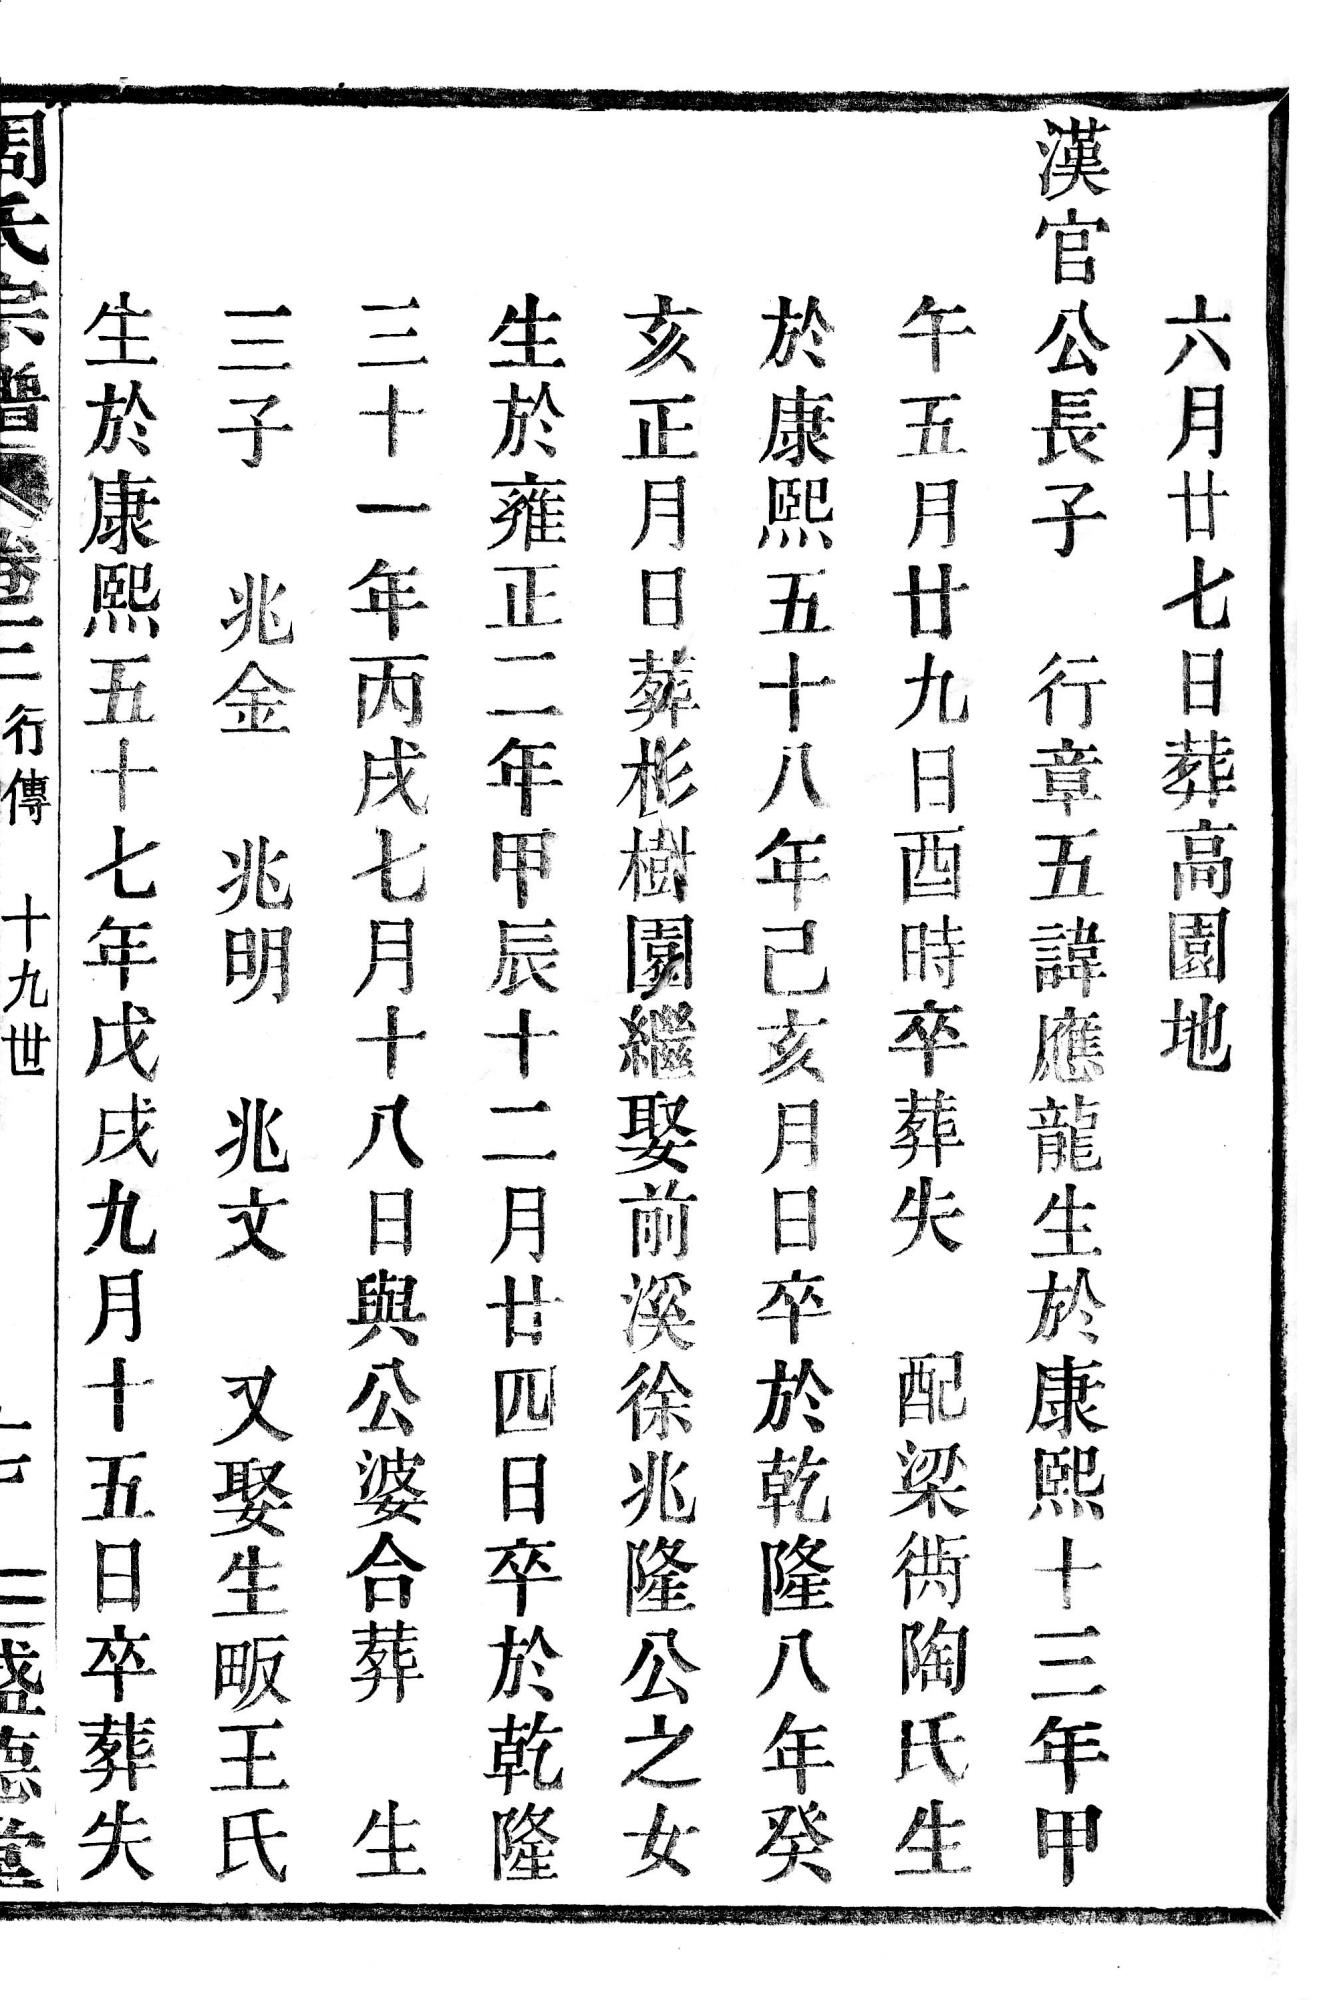 六月廿七日葬高園地
漢官公長子　行章五諱應龍生於康熙十三年甲
午五月廿九日酉時卒葬失　配梁衖陶氏生
於康熙五十八年己亥月日卒於乾隆八年癸
亥正月日葬杉樹園繼娶前溪徐兆隆公之女
生於雍正二年甲辰十二月廿四日卒於乾隆
三十一年丙戌七月十八日與公婆合葬　生
三子　兆金　兆明　兆文　又娶生畈王氏
生於康熙五十七年戊戌九月十五日卒葬失
周氏宗譜　卷三　行傳　十九世　盛德堂